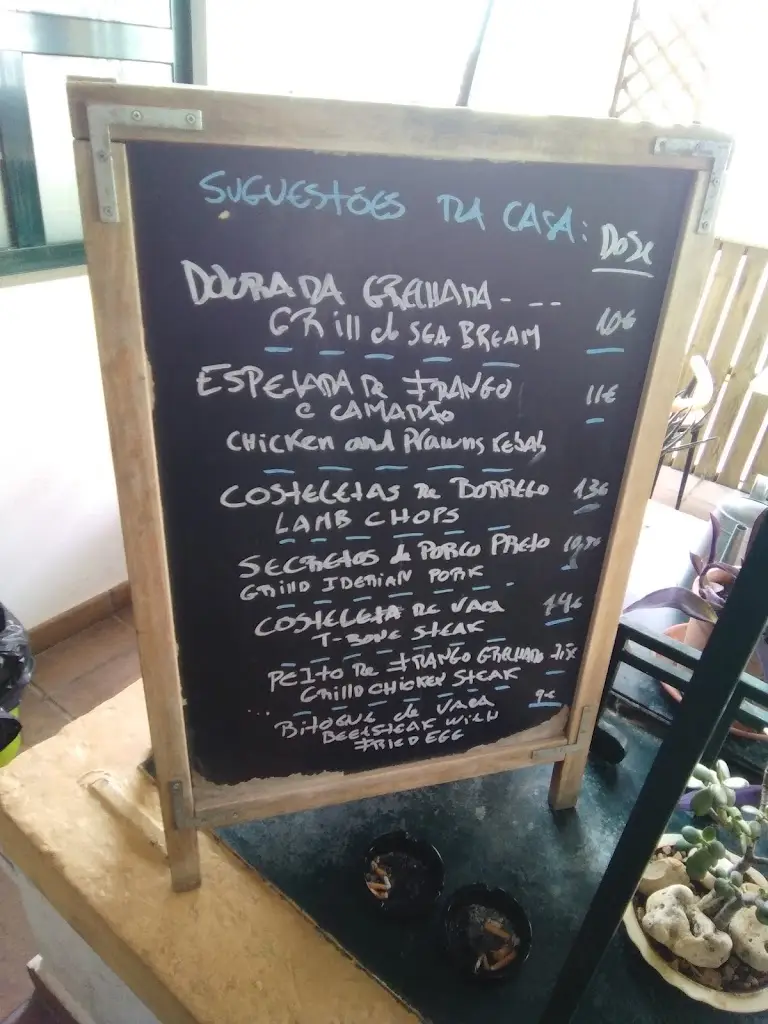 SUGUESTÕES DA CASA:
DOSE
DOURADA GRELHADA - - -
GRilld SEA BREAM 10€
ESPETADA DE FRANGO 11€
e CAMARÃO
CHICKEN and PRAWNS KEBAB
COSTELETAS DE BORREGO 13€
LAMB CHOPS
SECRETOS de PORCO PRETO
GRILLD IBERIAN PORK
COSTELETA DE VACA 14€
T-BONE STEAK
PEITO DE FRANGO GRELHADO
GRILLD CHICKEN STEAK
BITOQUE de VACA 9€
BEEFSTEAK WITH
FRIED EGG